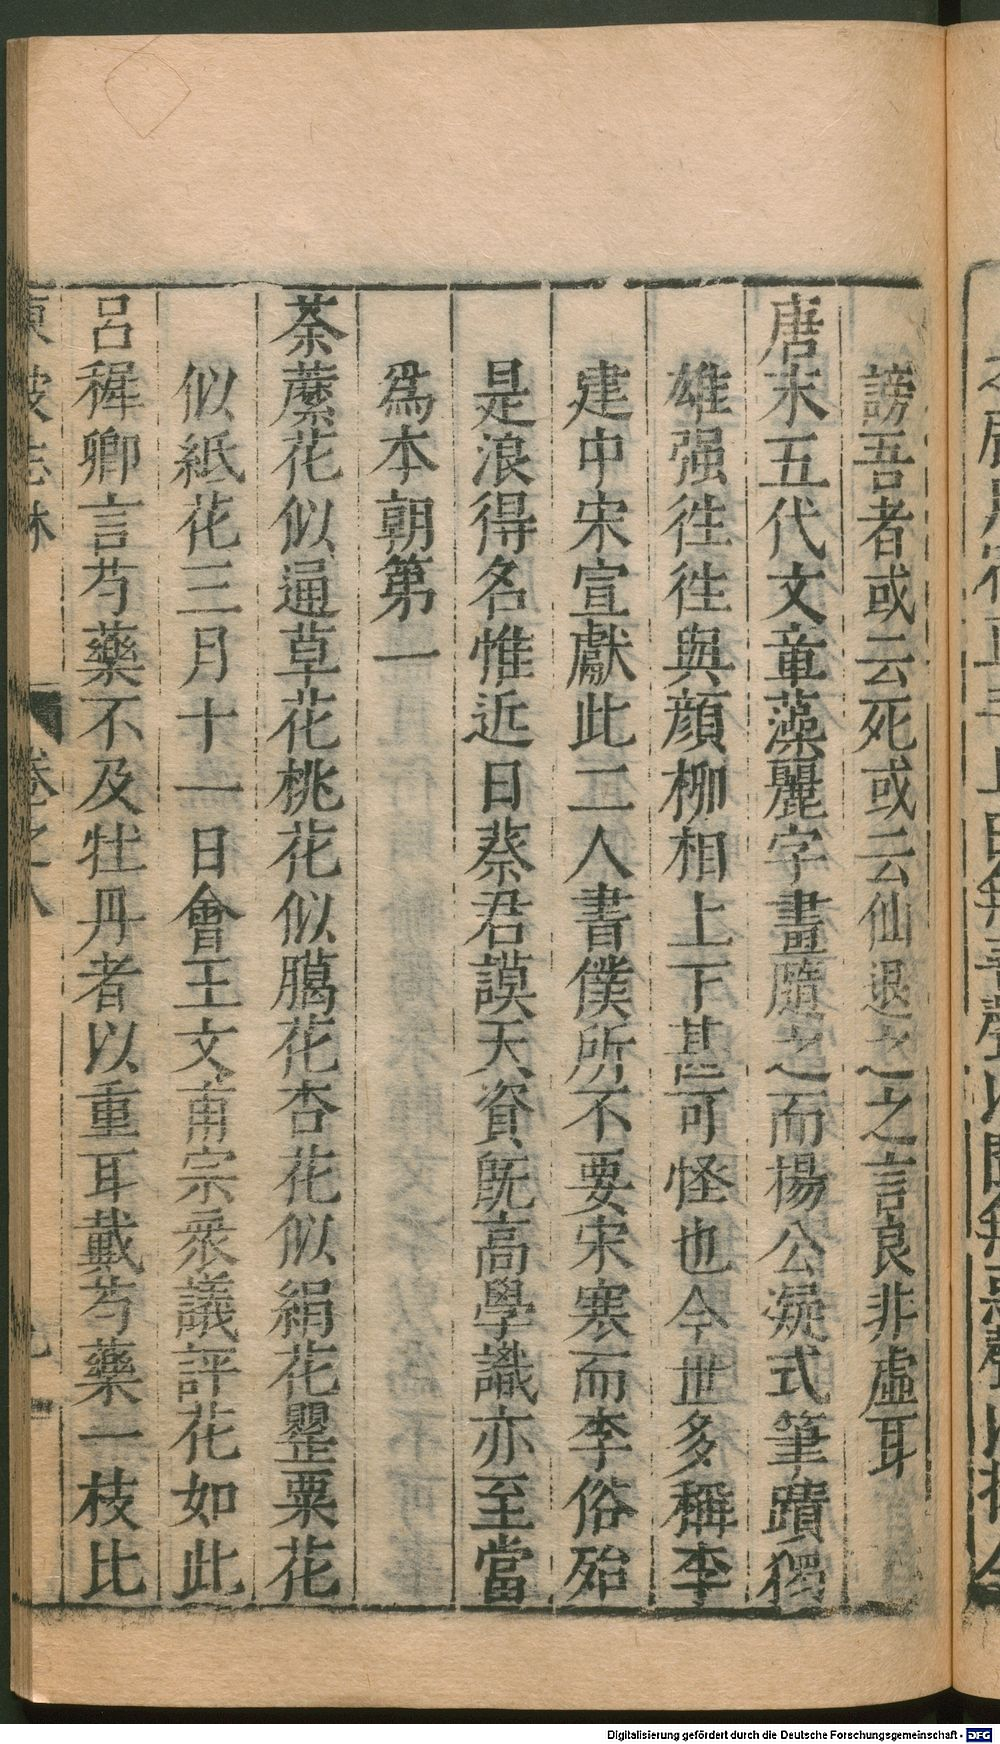 謗吾者或云死或云仙退之之言良非虛耳
唐末五代文章藻麗字畫隨之而楊公凝式筆蹟獨
雄强徃徃與顔柳相上下甚可怪也今世多稱李
建中宋宣獻此二人書僕所不要宋寒而李俗殆
是浪得名惟近日蔡君謨天資旣高學識亦至當
爲本朝第一
荼蘼花似通草花桃花似臈花杏花似絹花罌粟花
似紙花三月十一日會王文甫宗衆議評花如此
呂穉卿言芍藥不及牡丹者以重耳戴芍藥一枝比
東坡志林 卷之八 九
Digitalisierung gefördert durch die Deutsche Forschungsgemeinschaft - DFG